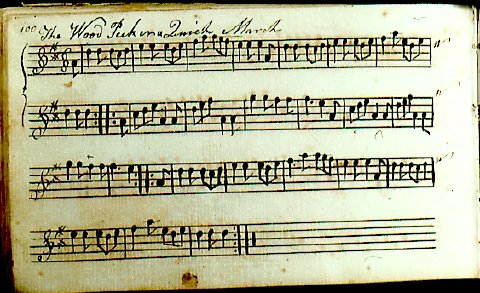 100 The Wood Pecker a Quick March